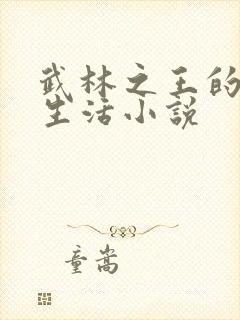 武林之王的
生活小説
童嵩